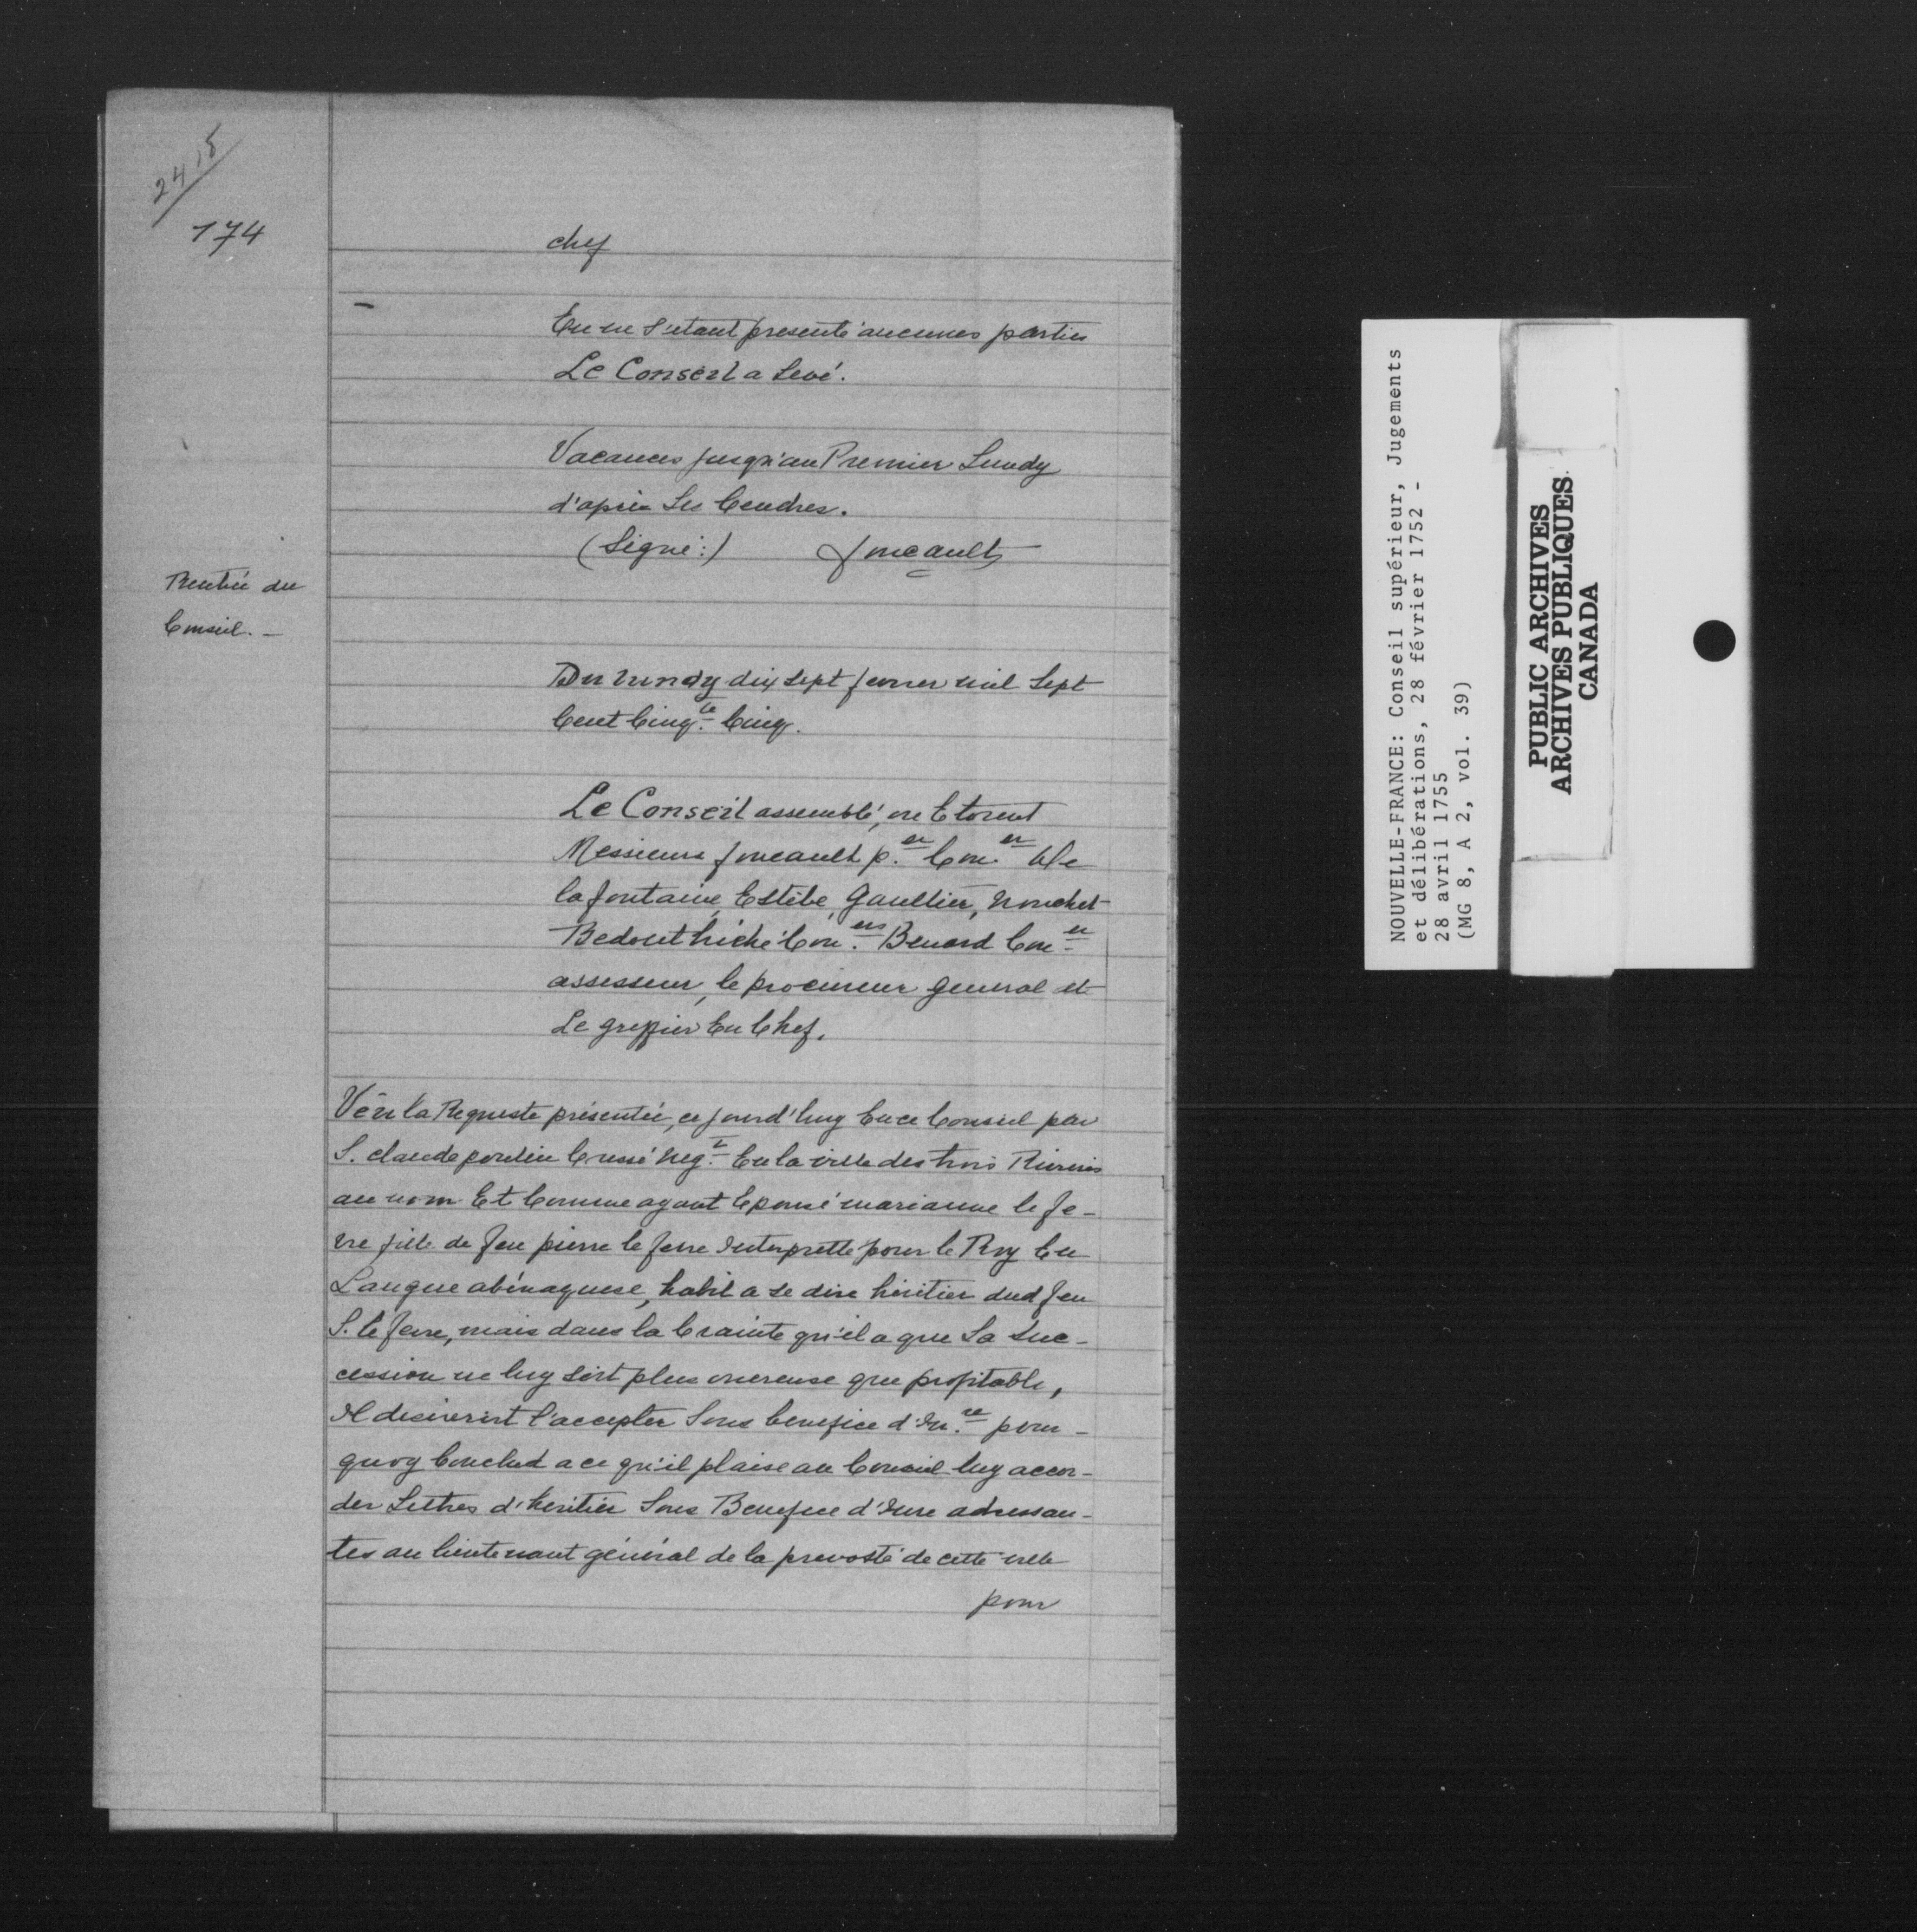 2415
174
chef
En ne s'étant presenté aucunes parties
Le Conseil a Levé.
Vacances jusqu'au Premier Lundy
d'après Les Cendres.
(Signé:) foucault
Rentrée du
Conseil. —
Du Lundy dix sept fevrier mil Sept
Cent Cinq.te Cinq.
Le Conseil assemblé, ou Etoient
Messieurs foucault p.er Con.er de
lafontaine, Estèbe, Gaultier, Nouchet
Bedout hiché Con.ers Benard Con.er
assesseur, le procureur general et
Le greffier En Chef.
Veu la Requeste présentée, ce jourd'huy En ce Conseil par
S. claude poulin Cressé Neg.t En la ville des trois Rivieres
au nom Et Comme ayant Epousé marianne le fe-
vre fille de feu pierre le fevre Interprette pour le Roy En
Langue abénaquise, habil a se dire héritier dud feu
S. le fevre, mais dans la Crainte qu'il a que Sa Suc-
cession ne luy soit plus onereuse que profitable,
Il desireroit l'accepter Sous benefice d'In.re pour-
quoy Conclud a ce qu'il plaise au Conseil luy accor-
der Lettres d'héritier Sous Benefice d'Inre adressan-
tes au lieutenant général de la prevosté de cette ville
pour
NOUVELLE-FRANCE: Conseil supérieur, Jugements
et délibérations, 28 février 1752 -
28 avril 1755
(MG 8, A 2, vol. 39)
PUBLIC ARCHIVES
ARCHIVES PUBLIQUES
CANADA